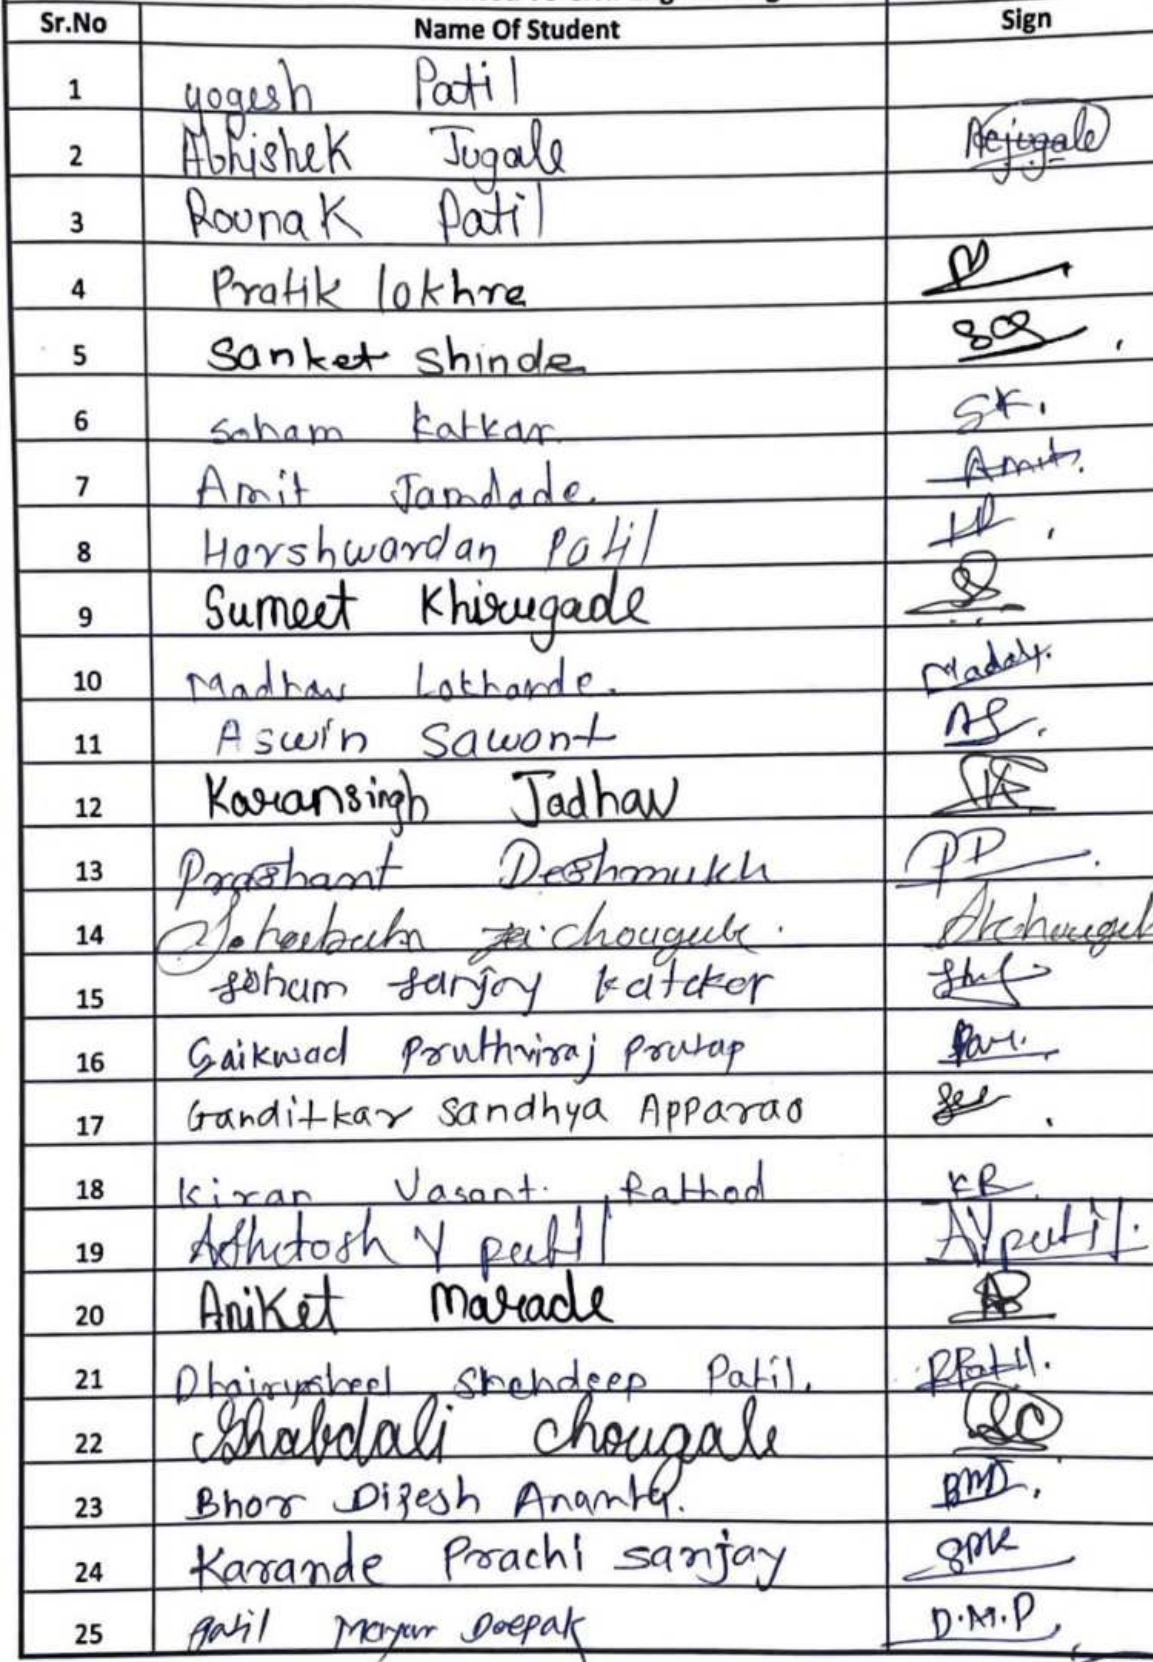 Sr.No Name Of Student Sign
1 yogesh Patil
2 Abhishek Jugale Acjugale
3 Rounak Patil
4 Pratik lokhre
5 Sanket Shinde
6 Soham Katkar SK.
7 Amit Jamdade. Amit.
8 Harshwardan Patil HP.
9 Sumeet Khirugade
10 Madhav Lokhande. Madav.
11 Aswin Sawant AS.
12 Karansingh Jadhav
13 Prashant Deshmukh PD.
14 chougule.
15 Soham Sanjay Katkar
16 Gaikwad Pruthviraj Pratap
17 Ganditkar Sandhya Apparao
18 Kiran Vasant. Rathod KR
19 Ashutosh Y patil AY patil.
20 Aniket Marade
21 Dhairysheel Shahdeep Patil. DPatil.
22 Shabdali Chougale SC
23 Bhor Digesh BMD.
24 Karande Prachi Sanjay SPK
25 Patil Mayur Deepak D.M.P.